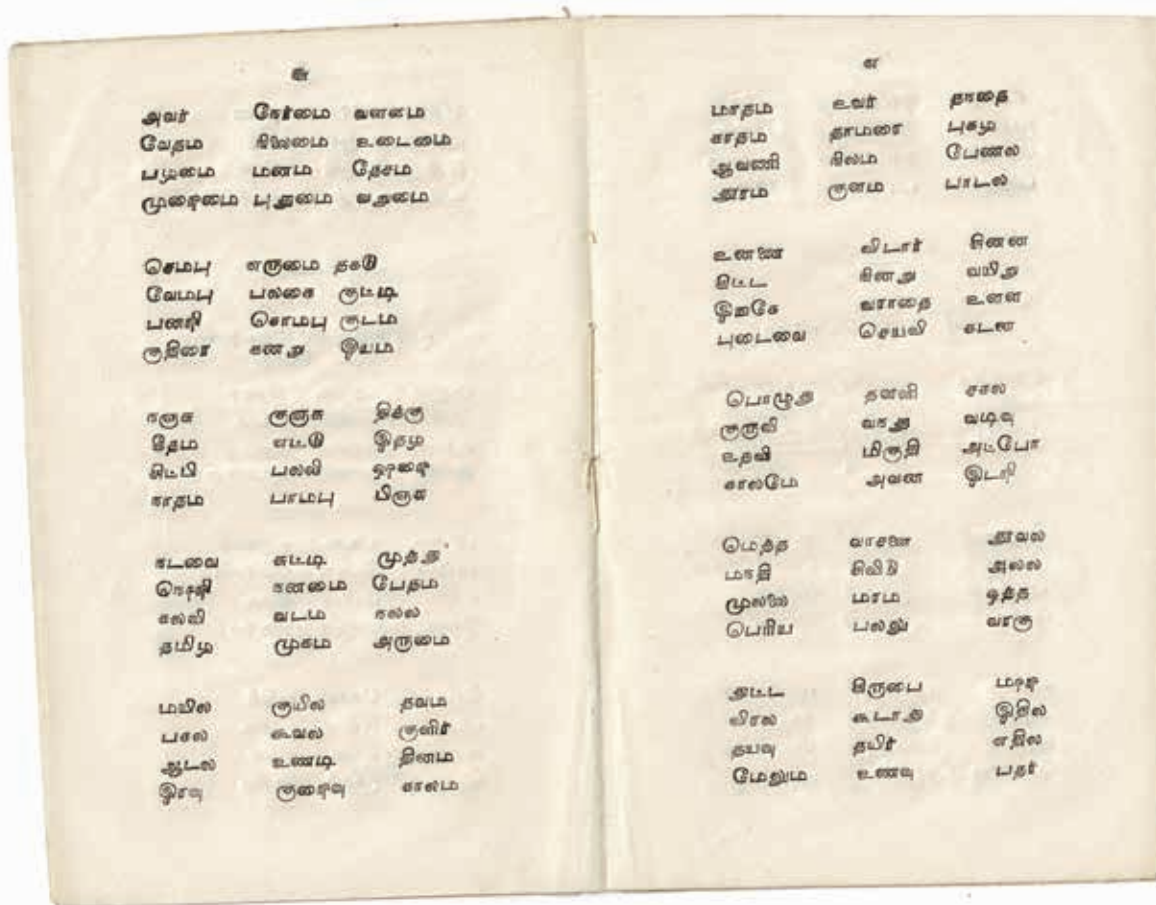 ௬
அவர் நேர்மை வளமை
வேதம நிலைமை உடைமை
பழமை மனம தேசம
முறைமை புதுமை வறுமை
செமபு எருமை தகடு
வேமபு பலகை குட்டி
பனறி கொமபு குடம
குதிரை கனறு ஈயம
நஞசு குஞசு திக்கு
தேம எட்டு இதழ
பலலி
காதம பாமபு பிஞசு
கடவை கட்டி முத்து
நெறி நனமை பேதம
கலவி வடம நலல
தமிழ முகம அருமை
மயில குயில தவம
பகல கூவல குளிர்
ஆடல உணடி தினம
இரவு குறைவு காலம
௭
மாதம உவர் தாதை
காதம தாமரை புகழ
ஆவணி நிலம பேணல
தூரம குளம பாடல
உனனை விடார் கினன
கிட்ட கிணறு வயிறு
இஙகே வராதை உளள
புடைவை செயவி கடன
பொழுது தளளி சால
குருவி வாது வடிவு
உதவி மிகுதி அட்போ
காலமே அவன இடறி
மெத்த வாசனை தூவல
மாதி அலல
முலலை மாம ஒத்த
பெரிய பலது வாகு
கிருபை
விரல கூடாது இதில
தயவு தயிர் எதில
மேலும உணவு பதர்